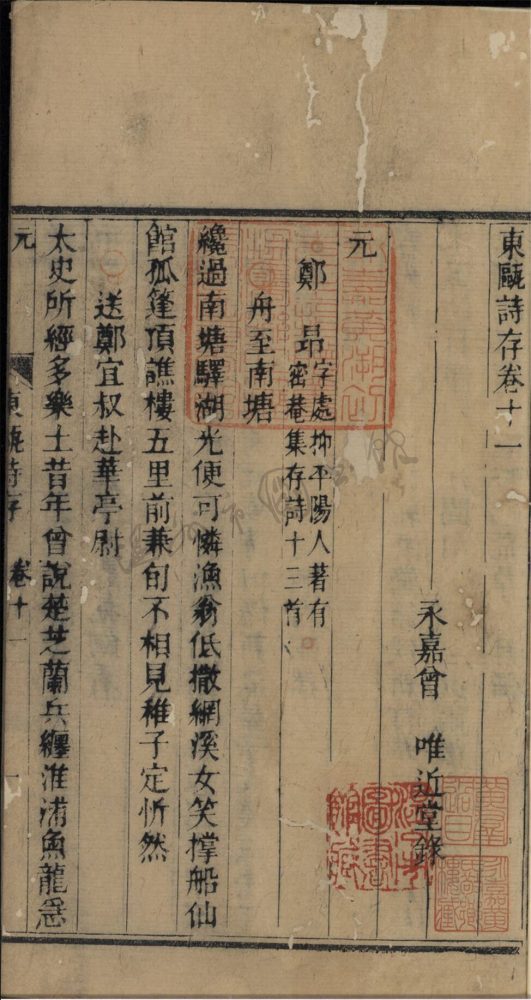 東甌詩存卷十一
永嘉曾 唯近堂錄
元
鄭 昂 字處抑平陽人著有
密菴集存詩十三首
舟至南塘
纔過南塘驛湖光便可憐漁翁低撒網溪女笑撑船仙
館孤篷頂譙樓五里前兼旬不相見稚子定忻然
送鄭宜叔赴華亭尉
太史所經多樂土昔年曾說楚芝蘭兵纏淮浦魚龍急
元
東甌詩存
卷十一
一